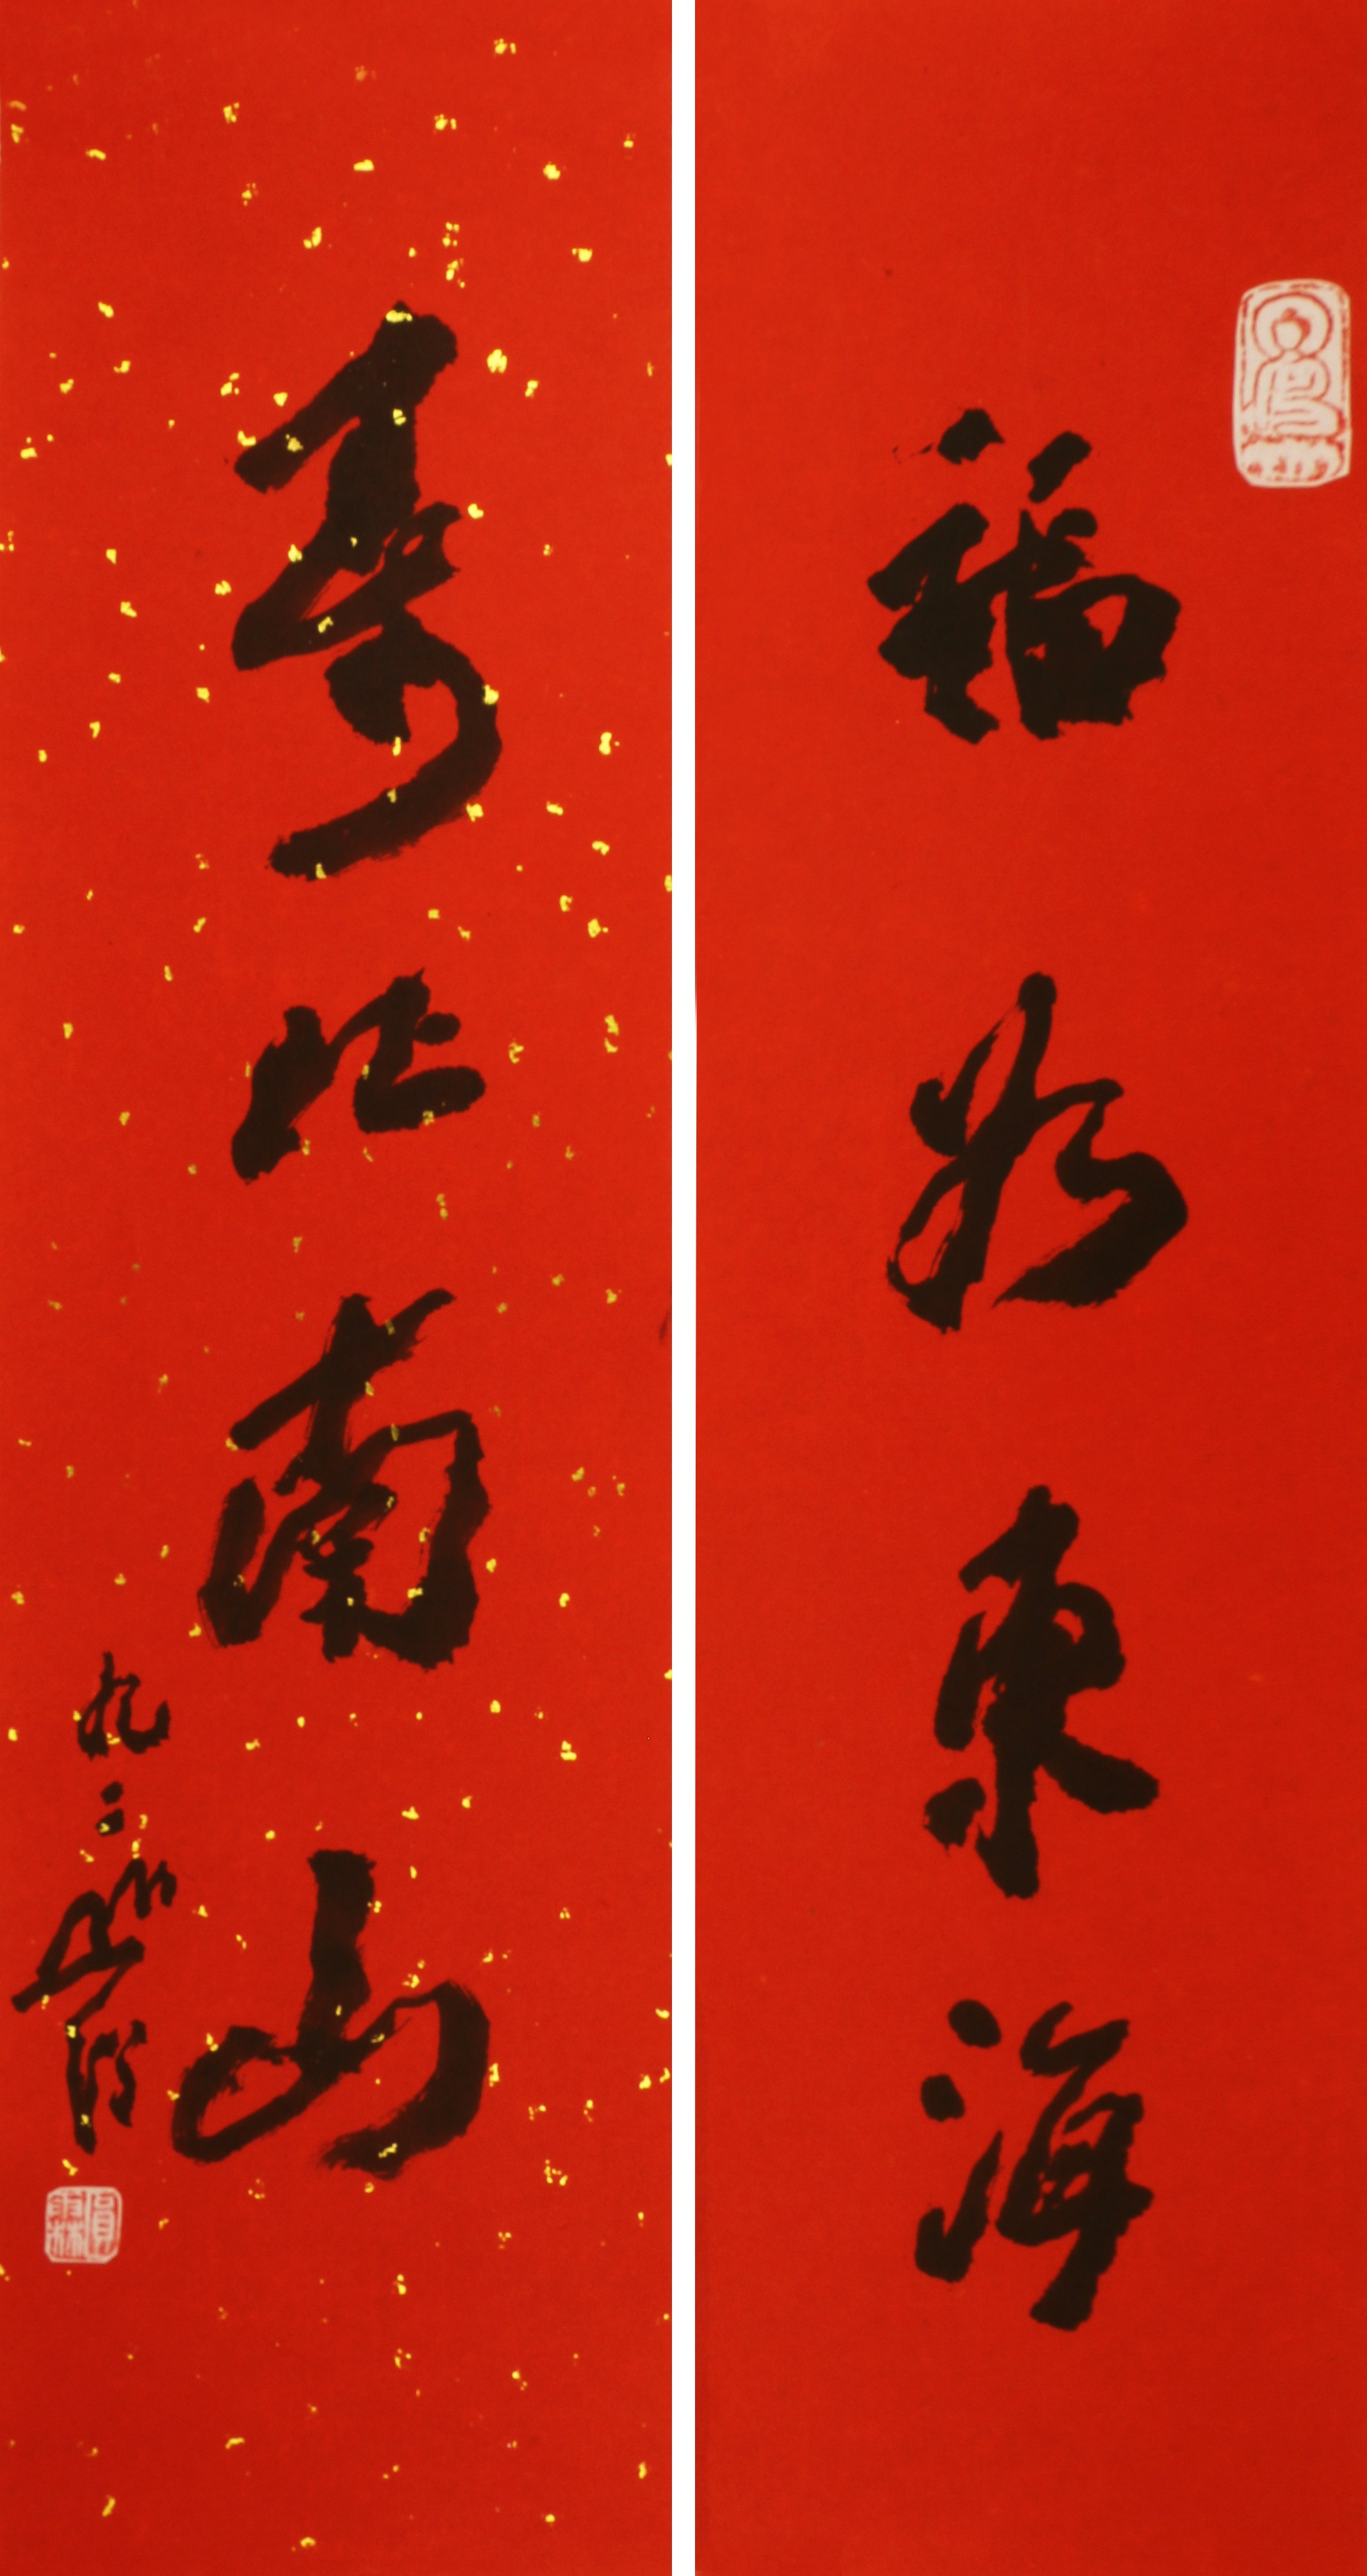 福如東海
寿比南山
九二叟